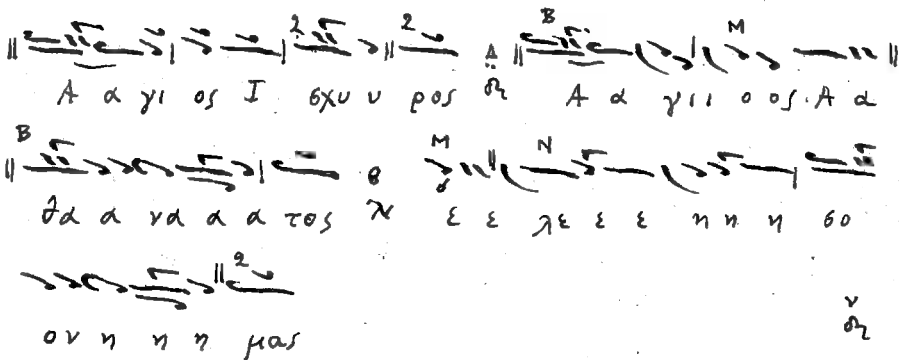 Α α γι ος Ι σχυ υ ρος Α α γι ι ο ος. Α α
θα α να α α τος ε ε λε ε ε η η η σο
ον η η η μας